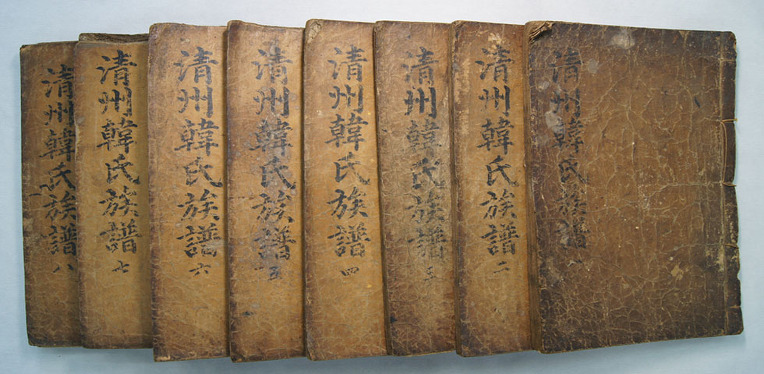 清州韓氏族譜 一
清州韓氏族譜 二
清州韓氏族譜 三
清州韓氏族譜 四
清州韓氏族譜 五
清州韓氏族譜 六
清州韓氏族譜 七
清州韓氏族譜 八